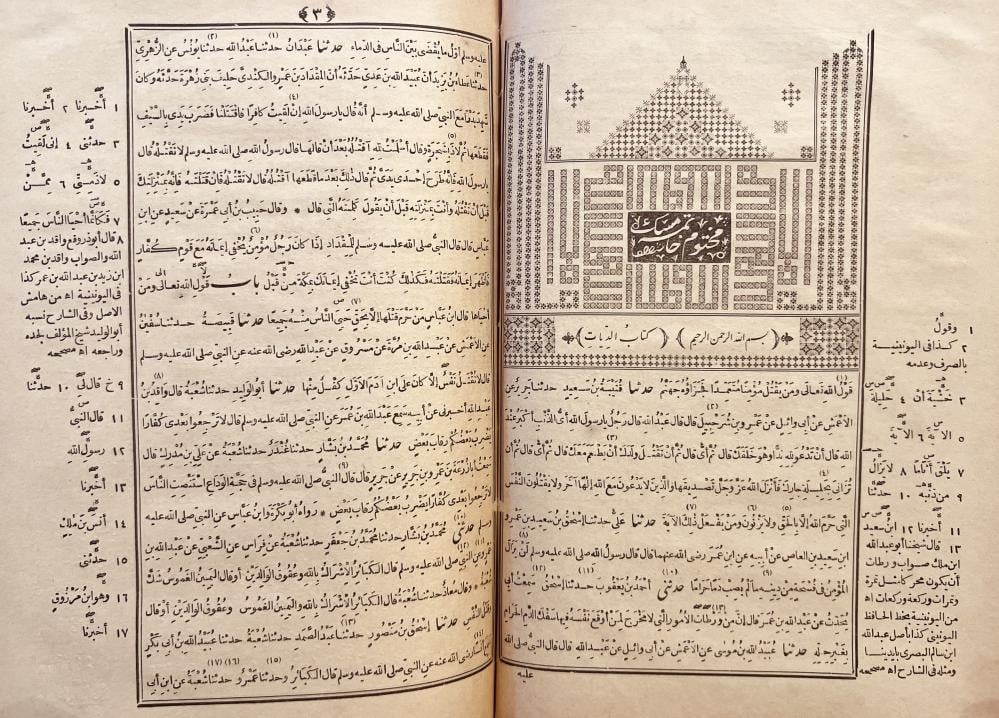 بسم الله الرحمن الرحيم
كتاب الديات
قول الله تعالى ومن يقتل مؤمنا متعمدا فجزاؤه جهنم حدثنا قتيبة بن سعيد حدثنا جرير عن
الاعمش عن أبي وائل عن عمرو بن شرحبيل قال قال عبد الله قال رجل يا رسول الله أي الذنب أكبر عند
الله قال أن تدعو لله ندا وهو خلقك قال ثم أي قال ثم أن تقتل ولدك أن يطعم معك قال ثم أي قال ثم أن
تزاني بحليلة جارك فأنزل الله عز وجل تصديقها والذين لا يدعون مع الله إلها آخر ولا يقتلون النفس
التي حرم الله إلا بالحق ولا يزنون ومن يفعل ذلك الآية حدثنا علي حدثنا إسحق بن سعيد بن عمرو
ابن سعيد بن العاص عن أبيه عن ابن عمر رضى الله عنهما قال قال رسول الله صلى الله عليه وسلم لن يزال
المؤمن في فسحة من دينه ما لم يصب دما حراما حدثني أحمد بن يعقوب حدثنا إسحق سمعت أبي
يحدث عن عبد الله بن عمر قال إن من ورطات الأمور التي لا مخرج لمن أوقع نفسه فيها سفك الدم الحرام
بغير حله حدثنا عبيد الله بن موسى عن الأعمش عن أبي وائل عن عبد الله قال قال النبي صلى الله
عليه
١ وقول
٢ كذا في اليونينية
بالصرف وعدمه
٣ خشية أن ٤ حليلة
٥ الآية ٦ الآية
٧ يلق أثاما ٨ لا يزال
٩ من ذنبه ١٠ حدثنا
١١ أخبرنا ١٢ ابن سعيد
١٣ قال شيخنا أبو عبد الله
ابن مالك صواب و رطات
أن يكون محركا مثل تمرة
وتمرات وركعة وركعات اه
من اليونينية مخط الحافظ
اليونيني كذا بأصل عبد الله
ابن سالم البصرى بأيدينا
ومثله في الشارح اه مصححه
﴿٣﴾
عليه وسلم أول ما يقضى بين الناس في الدماء حدثنا عبدان حدثنا عبد الله حدثنا يونس عن الزهري
حدثنا عطاء بن يزيد أن عبيد الله بن عدي حدثه أن المقداد بن عمرو الكندي حليف بني زهرة حدثه وكان
شهد بدرا مع النبي صلى الله عليه وسلم أنه قال يا رسول الله إن لقيت كافرا فاقتتلنا فضرب يدي بالسيف
فقطعها ثم لاذ بشجرة وقال أسلمت لله آقتله بعد أن قالها قال رسول الله صلى الله عليه وسلم لا تقتله قال
يا رسول الله فإنه طرح إحدى يدي ثم قال ذلك بعد ما قطعها آقتله قال لا تقتله فإن قتلته فإنه بمنزلتك
قبل أن تقتله وأنت بمنزلته قبل أن يقول كلمته التي قال * وقال حبيب بن أبي عمرة عن سعيد عن ابن
عباس قال قال النبي صلى الله عليه وسلم للمقداد إذا كان رجل مؤمن يخفي إيمانه مع قوم كفار
فأظهر إيمانه فقتلته فكذلك كنت أنت تخفي إيمانك بمكة من قبل باب قول الله تعالى ومن
أحياها قال ابن عباس من حرم قتلها إلا بحق حيي الناس منه جميعا حدثنا قبيصة حدثنا سفين
عن الأعمش عن عبد الله بن مرة عن مسروق عن عبد الله رضى الله عنه عن النبي صلى الله عليه وسلم
قال لا تقتل نفس إلا كان على ابن آدم الأول كفل منها حدثنا أبو الوليد حدثنا شعبة قال واقد بن
عبد الله أخبرني عن أبيه سمع عبد الله بن عمر عن النبي صلى الله عليه وسلم قال لا ترجعوا بعدي كفارا
يضرب بعضكم رقاب بعض حدثنا محمد بن بشار حدثنا غندر حدثنا شعبة عن علي بن مدرك قال
سمعت أبا زرعة بن عمرو بن جرير عن جرير قال قال النبي صلى الله عليه وسلم في حجة الوداع استنصت الناس
لا ترجعوا بعدي كفارا يضرب بعضكم رقاب بعض * رواه أبو بكرة وابن عباس عن النبي صلى الله عليه
وسلم حدثني محمد بن بشار حدثنا محمد بن جعفر حدثنا شعبة عن فراس عن الشعبي عن عبد الله بن
عمرو عن النبي صلى الله عليه وسلم قال الكبائر الإشراك بالله وعقوق الوالدين أو قال اليمين الغموس شك
شعبة * وقال معاذ حدثنا شعبة قال الكبائر الإشراك بالله واليمين الغموس وعقوق الوالدين أو قال
وقتل النفس حدثنا إسحق بن منصور حدثنا عبد الصمد حدثنا شعبة حدثنا عبيد الله بن أبي بكر
سمع أنسا رضى الله عنه عن النبي صلى الله عليه وسلم قال الكبائر وحدثنا عمرو حدثنا شعبة عن ابن أبي
١ أخبرنا ٢ أخبرنا
٣ حدثني ٤ إني لقيت
٥ لاذ مني ٦ ممن
٧ فكأنما أحيا الناس جميعا
٨ قال أبو ذر وقع واقد بن عبد
الله والصواب واقد بن محمد
ابن زيد بن عبد الله بن عمر كذا
في اليونينية اه من هامش
الاصل وفي الشارح نسبه
أبو الوليد شيخ المؤلف لجده
وراجعه اه مصححه
٩ خ قال لي ١٠ حدثنا
١١ قال النبي
١٢ رسول الله
١٣ أخبرنا
١٤ أنس بن ملك
١٥ حدثني
١٦ وهو ابن مرزوق
١٧ أخبرنا